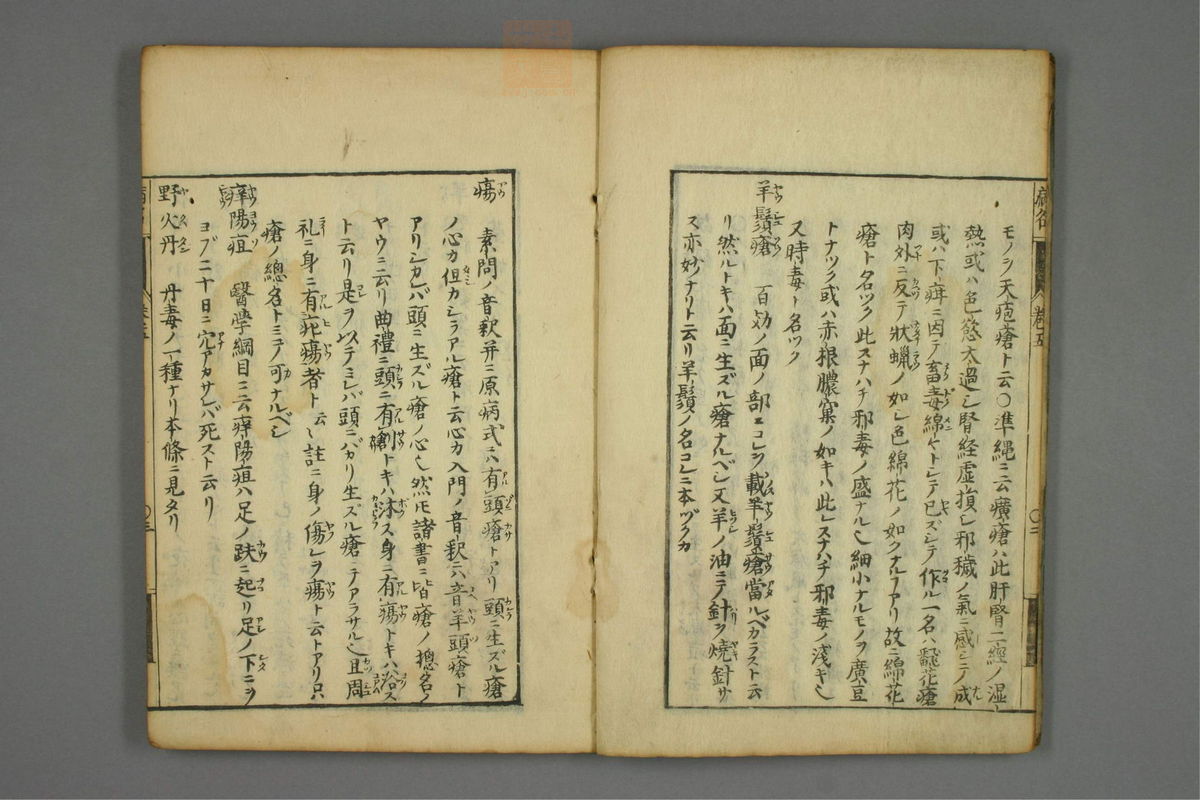 モノヲ天疱瘡ト云〇準縄ニ云癀瘡ハ此肝腎二經ノ湿
熱或ハ色慾太過シ腎経虚損シ邪穢ノ氣ニ感シテ成
或ハ下疳ニ因テ畜毒綿々トシテ已ズシテ作ル一名ハ飜花瘡
肉外ニ反テ狀蝋ノ如シ色綿花ノ如クナルアリ故ニ綿花
瘡ト名ツク此スナハチ邪毒ノ盛ナル也細小ナルモノヲ廣豆
トナツク或ハ赤根膿窠ノ如キハ此レスナハチ邪毒ノ浅キ也
又時毒ト名ツク
羊鬚瘡 百効ノ面ノ部ニコレヲ載羊鬚瘡當ルベカラスト云
リ然ルトキハ面ニ生ズル瘡ナルベシ又羊ノ油ニテ針ヲ焼針サ
ス亦妙ナリト云リ羊鬚ノ名コレニ本ヅクカ
瘍 素問ノ音釈并ニ原病式ニ六有頭瘡トアリ頭ニ生ズル瘡
ノ心カ但カシラアル瘡ト云心カ入門ノ音釈ニ六音羊頭瘡ト
アリシカレバ頭ニ生ズル瘡ノ心也然𪜈諸書ニ皆瘡ノ摠名ノ
ヤウニ云リ曲禮ニ頭ニ有創トキハ沐ス身ニ有瘍トキハ浴ス
ト云リ是ヲ以テミレバ頭ニバカリ生ズル瘡ニテアラサル也且周
礼ニ身ニ有疕瘍者ト云々註ニ身ノ傷レヲ瘍ト云トアリ只
瘡ノ總名トミテノ可ナルベシ
痺陽疽 醫學綱目ニ云痺陽疽ハ足ノ趺ニ起リ足ノ下ニヲ
ヨブ二十日ニ穴アカサレバ死スト云リ
野火丹 丹毒ノ一種ナリ本條ニ見タリ